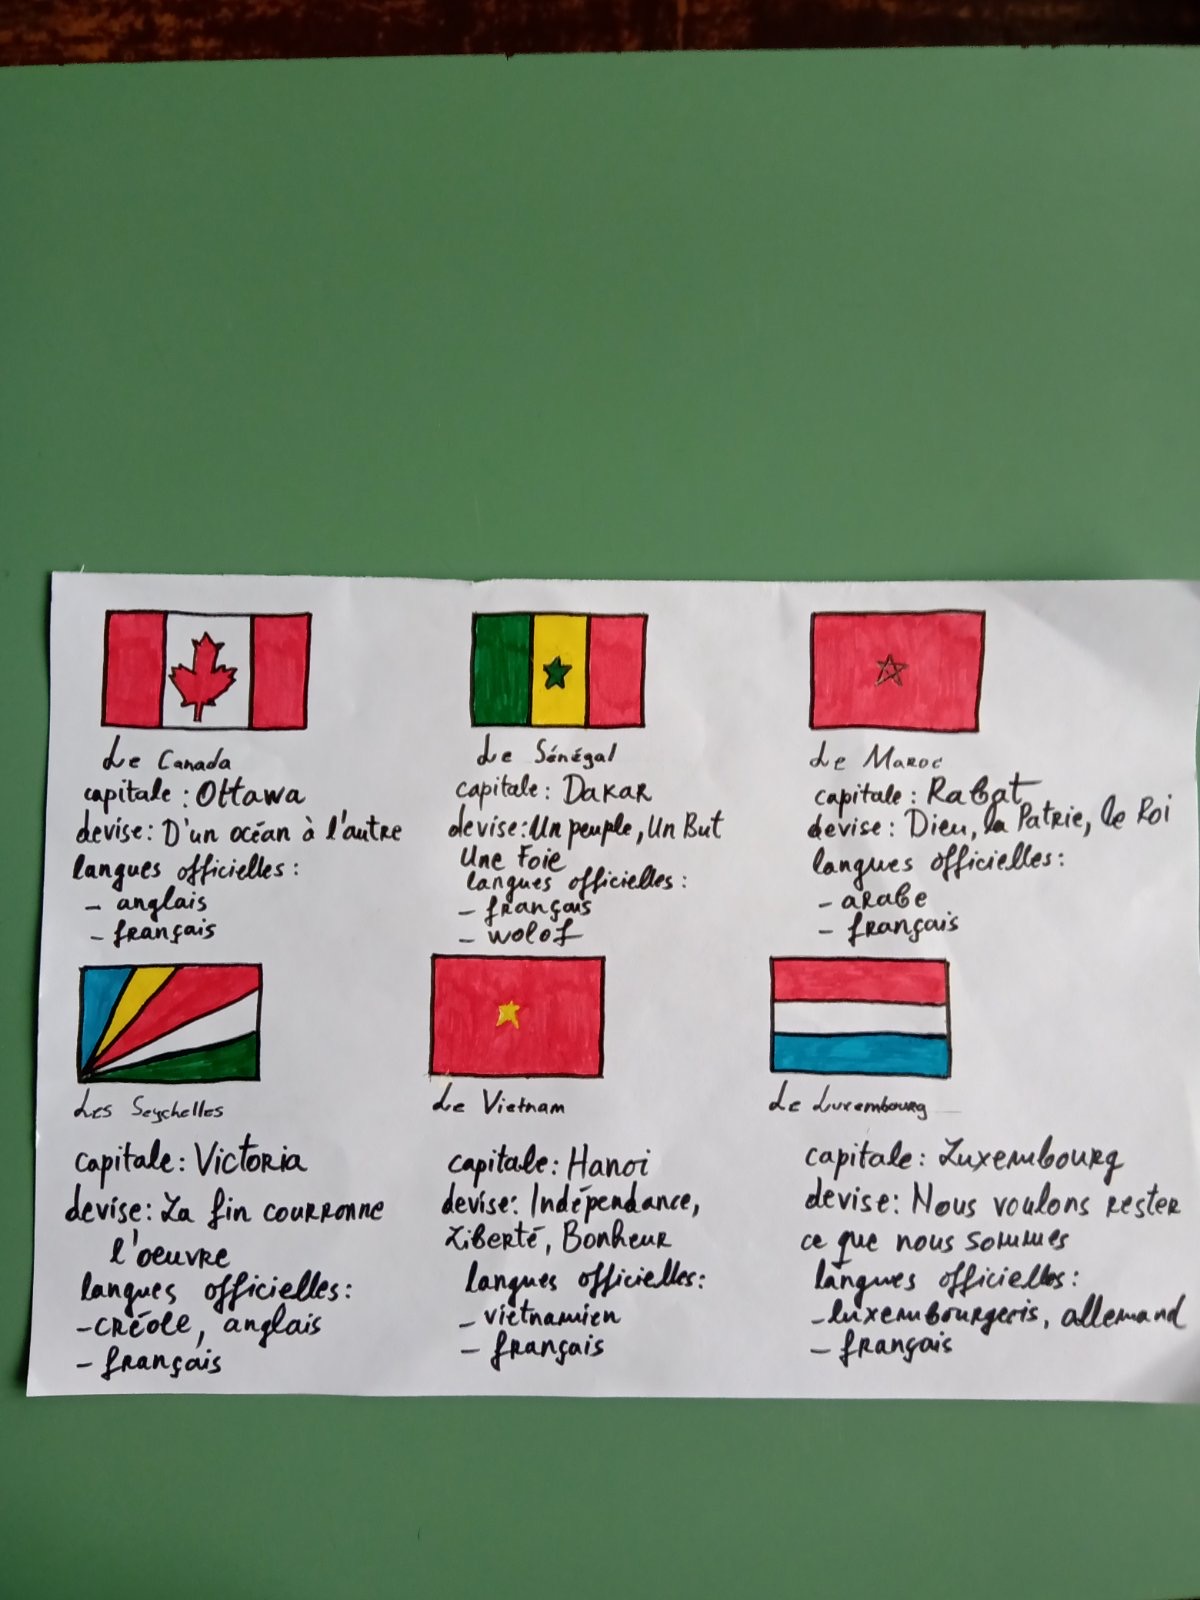 Le Canada
capitale : Ottawa
devise: D'un océan à l'autre
langues officielles :
- anglais
- français
Le Sénégal
capitale : Dakar
devise: Un peuple, Un But
Une Foie
langues officielles :
- français
- wolof
Le Maroc
capitale : Rabat
devise : Dieu, la Patrie, le Roi
langues officielles :
- arabe
- français
Les Seychelles
capitale : Victoria
devise: La fin courronne
l'oeuvre
langues officielles :
- créole, anglais
- français
Le Vietnam
capitale : Hanoi
devise: Indépendance,
Liberté, Bonheur
langues officielles:
- vietnamien
- français
Le Luxembourg
capitale : Luxembourg
devise: Nous voulons rester
ce que nous sommes
langues officielles :
- luxembourgeris, allemand
- français